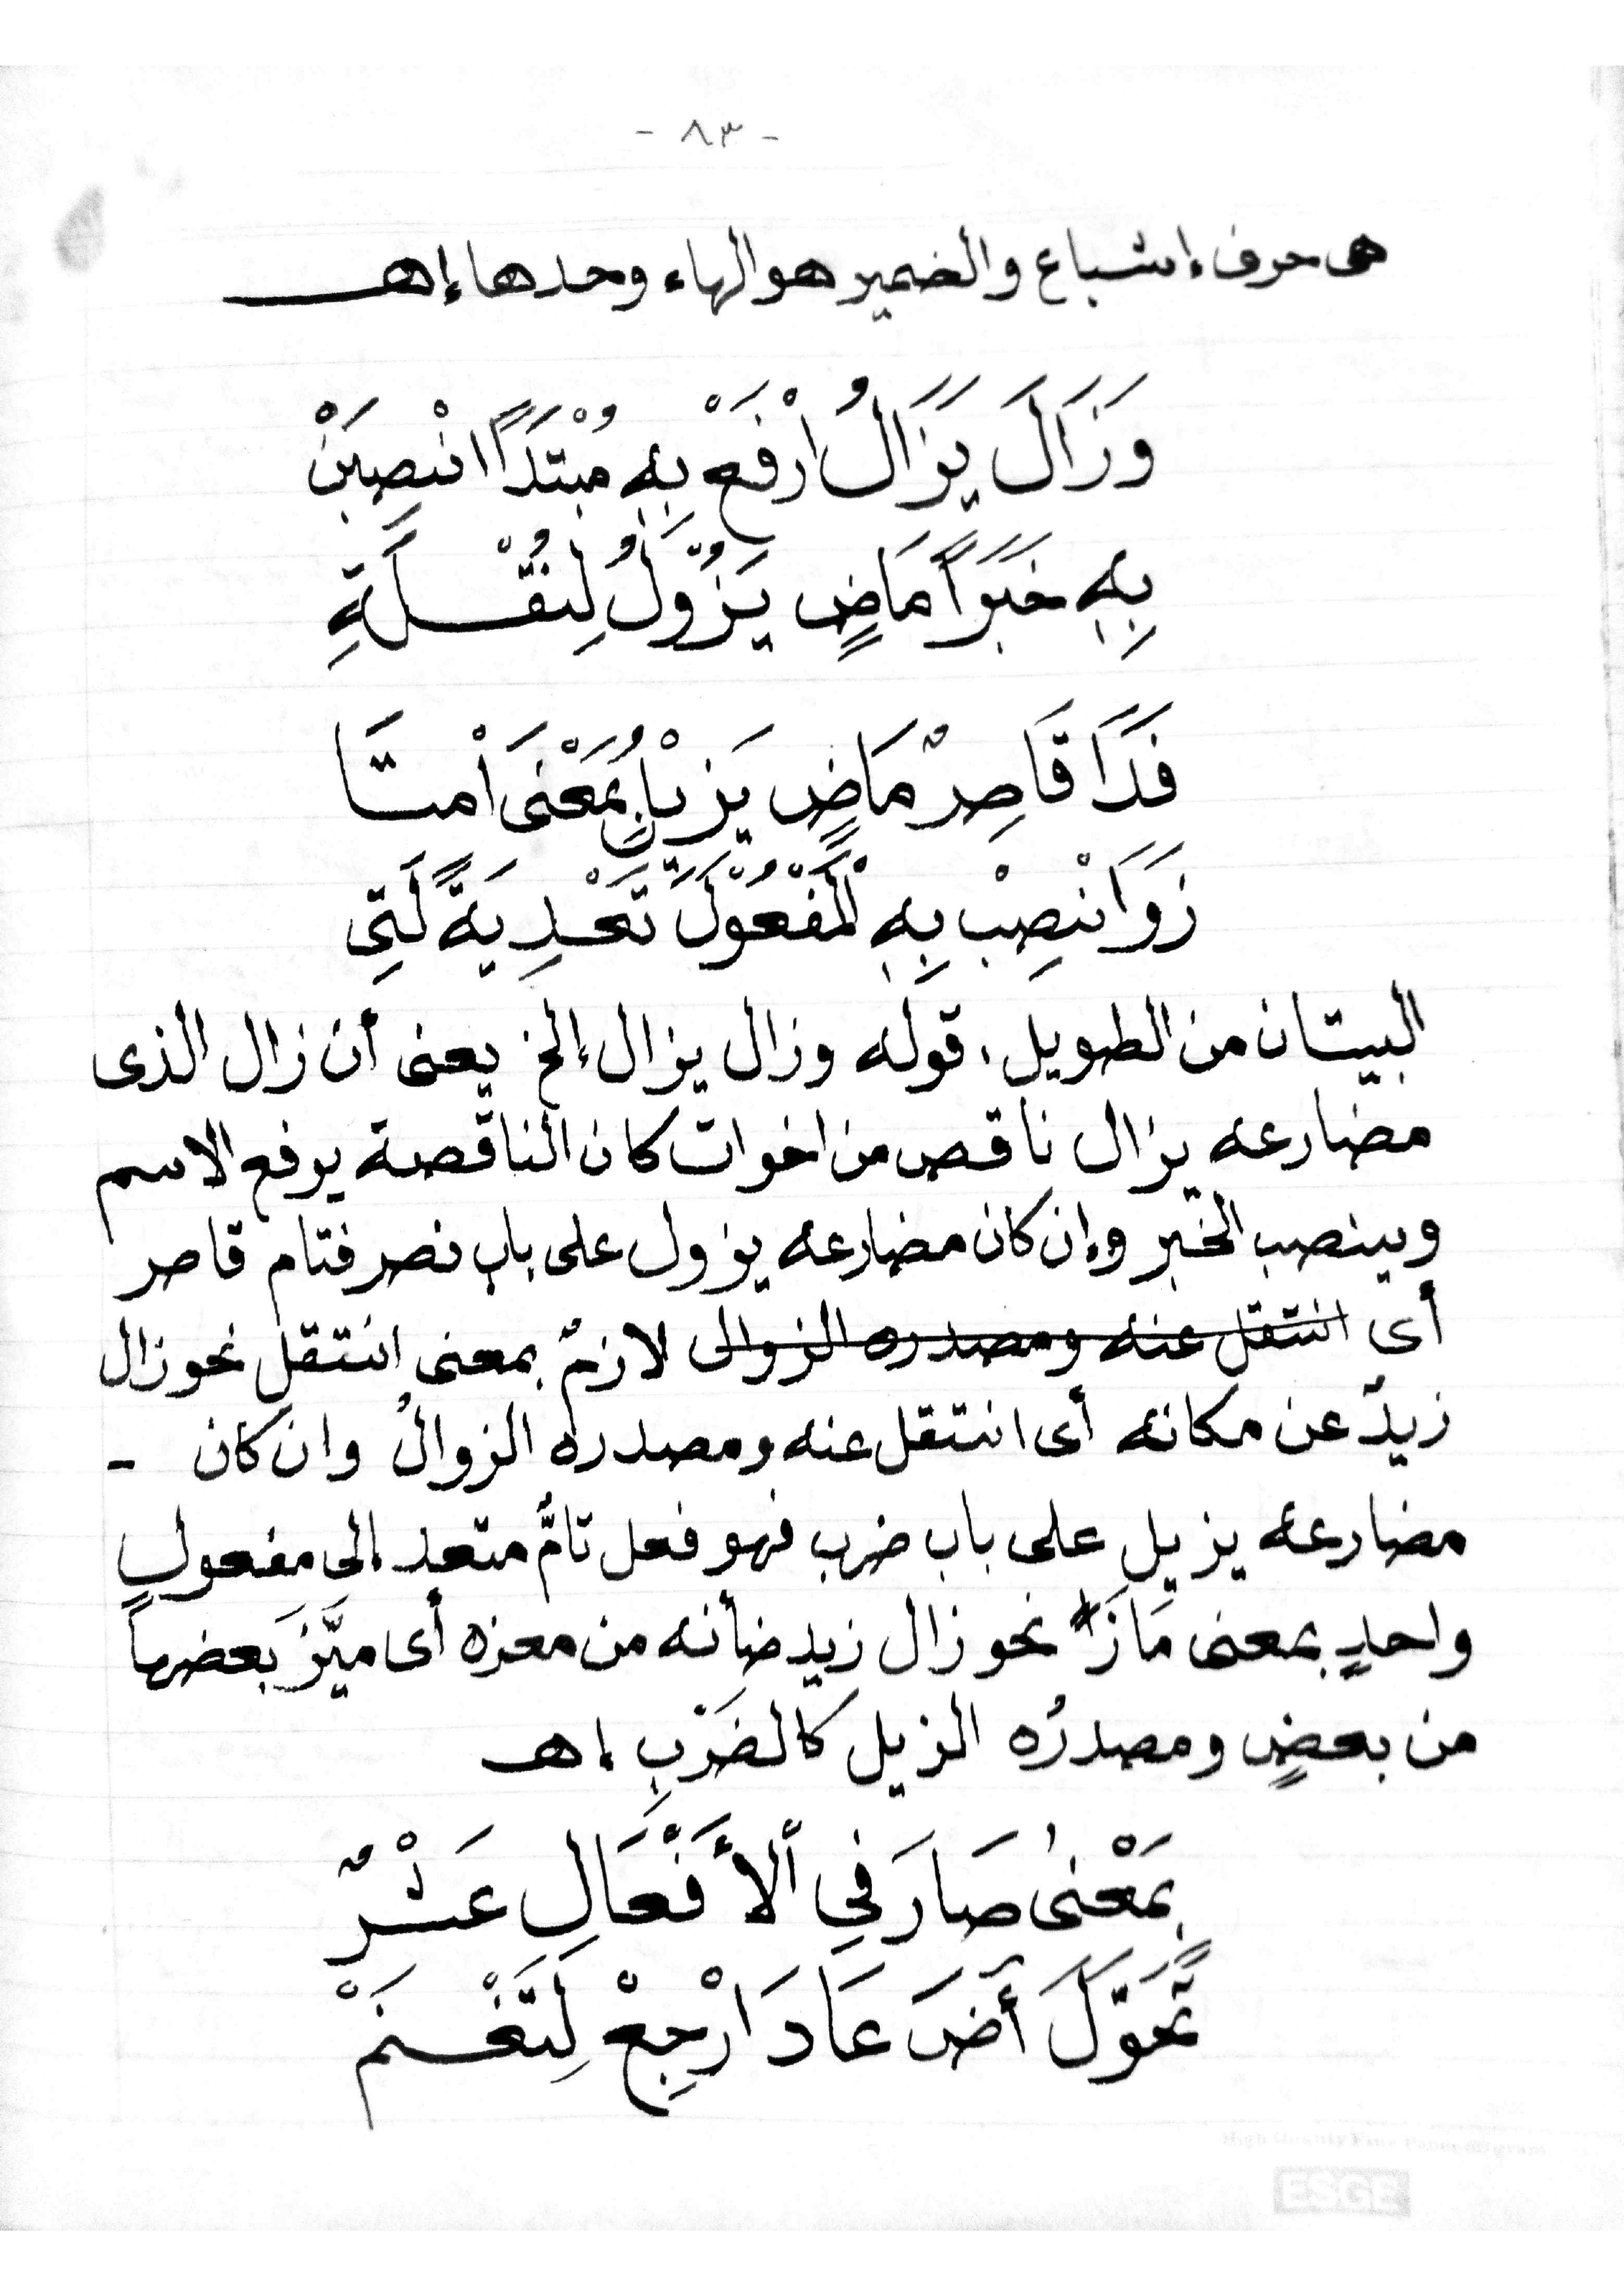 - ٨٣ -
هى حرف إشباع والضمير هو الهاء وحدها إهـ
وَزَالَ يَزَالُ ارْفَعْ بِهِ مُبْتَدًَا انْصِبَنْ
بِهِ خَبَرًا مَاضٍ يَزُوْلُ لِنُقْلَةِ
فَذَا قَاصِرٌ مَاضٍ يَزِيْلُ بِمَعْنَى امْتَا
زَوَانْصِبْ بِهِ الْمَفْعُوْلَ تَعْدِيَةً لَتِى
البيتان من الطويل، قوله وزال يزال إلخ يعنى أن زال الذى
مضارعه يزال ناقص من اخوات كان الناقصة يرفع الاسم
وينصب الخبر وإن كان مضارعه يزول على باب نصر فتام قاصر
أى انتقل عنه ومصدره الزوال لازمٌ بمعنى انتقل نحو زال
زيدٌ عن مكانه أى انتقل عنه ومصدره الزوالُ وان كان -
مضارعه يزيل على باب ضرب فهو فعل تامٌّ متعد إلى مفعولٍ
واحدٍ بمعنى مَازَ نحو زال زيد ضأنه من معزه أى ميَّزَ بَعضها
من بعضٍ ومصدرُه الزيل كالضَرْبِ اهـ
بِمَعْنىٰ صَارَ فِي ٱلأَفْعَالِ عَشْرٌ
تَحَوَّلَ آضَ عَادَ ارْجِعْ لِتَغْنَمْ
High Quality Fine Paper 60 gram
ESGE